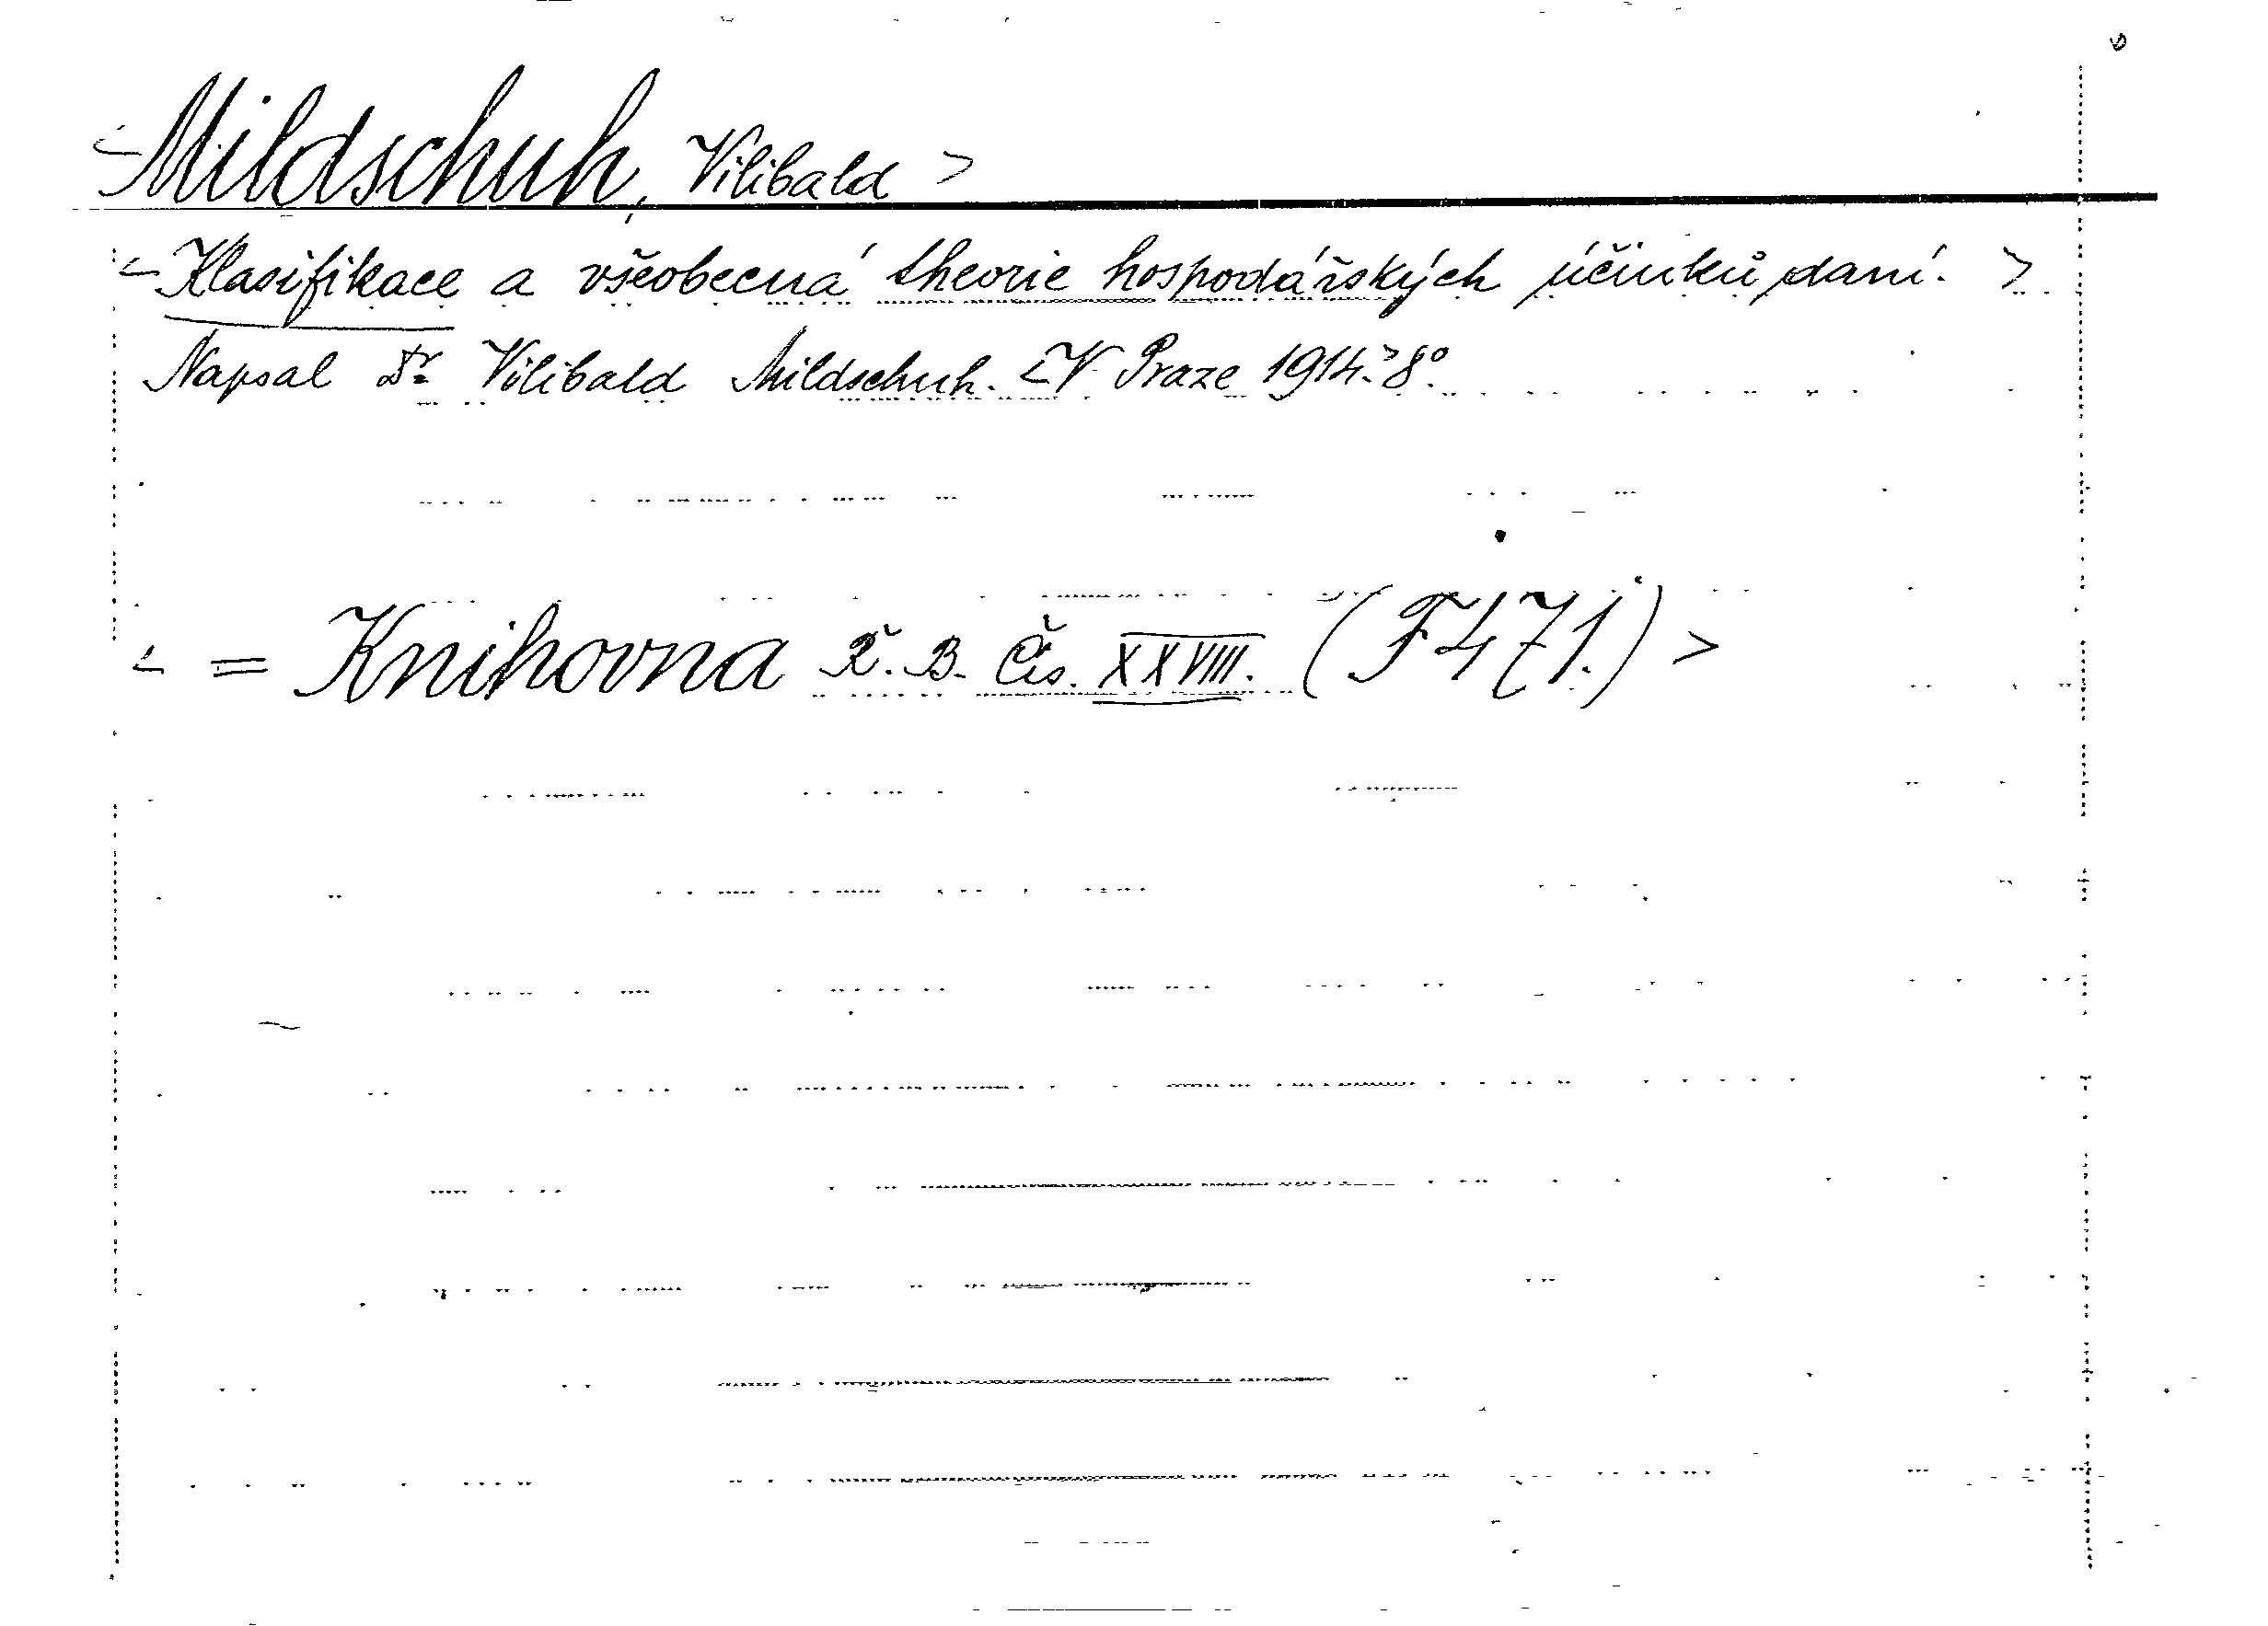 <Mildschuh, Vilibald>
<Klasifikace a všeobecná theorie hospodářských účinků daní.>
Napsal Dr. Vilibald Mildschuh. <V Praze 1914.> 8°.
< = Knihovna Ř. B. Čís. XXVIII. (F471.) >